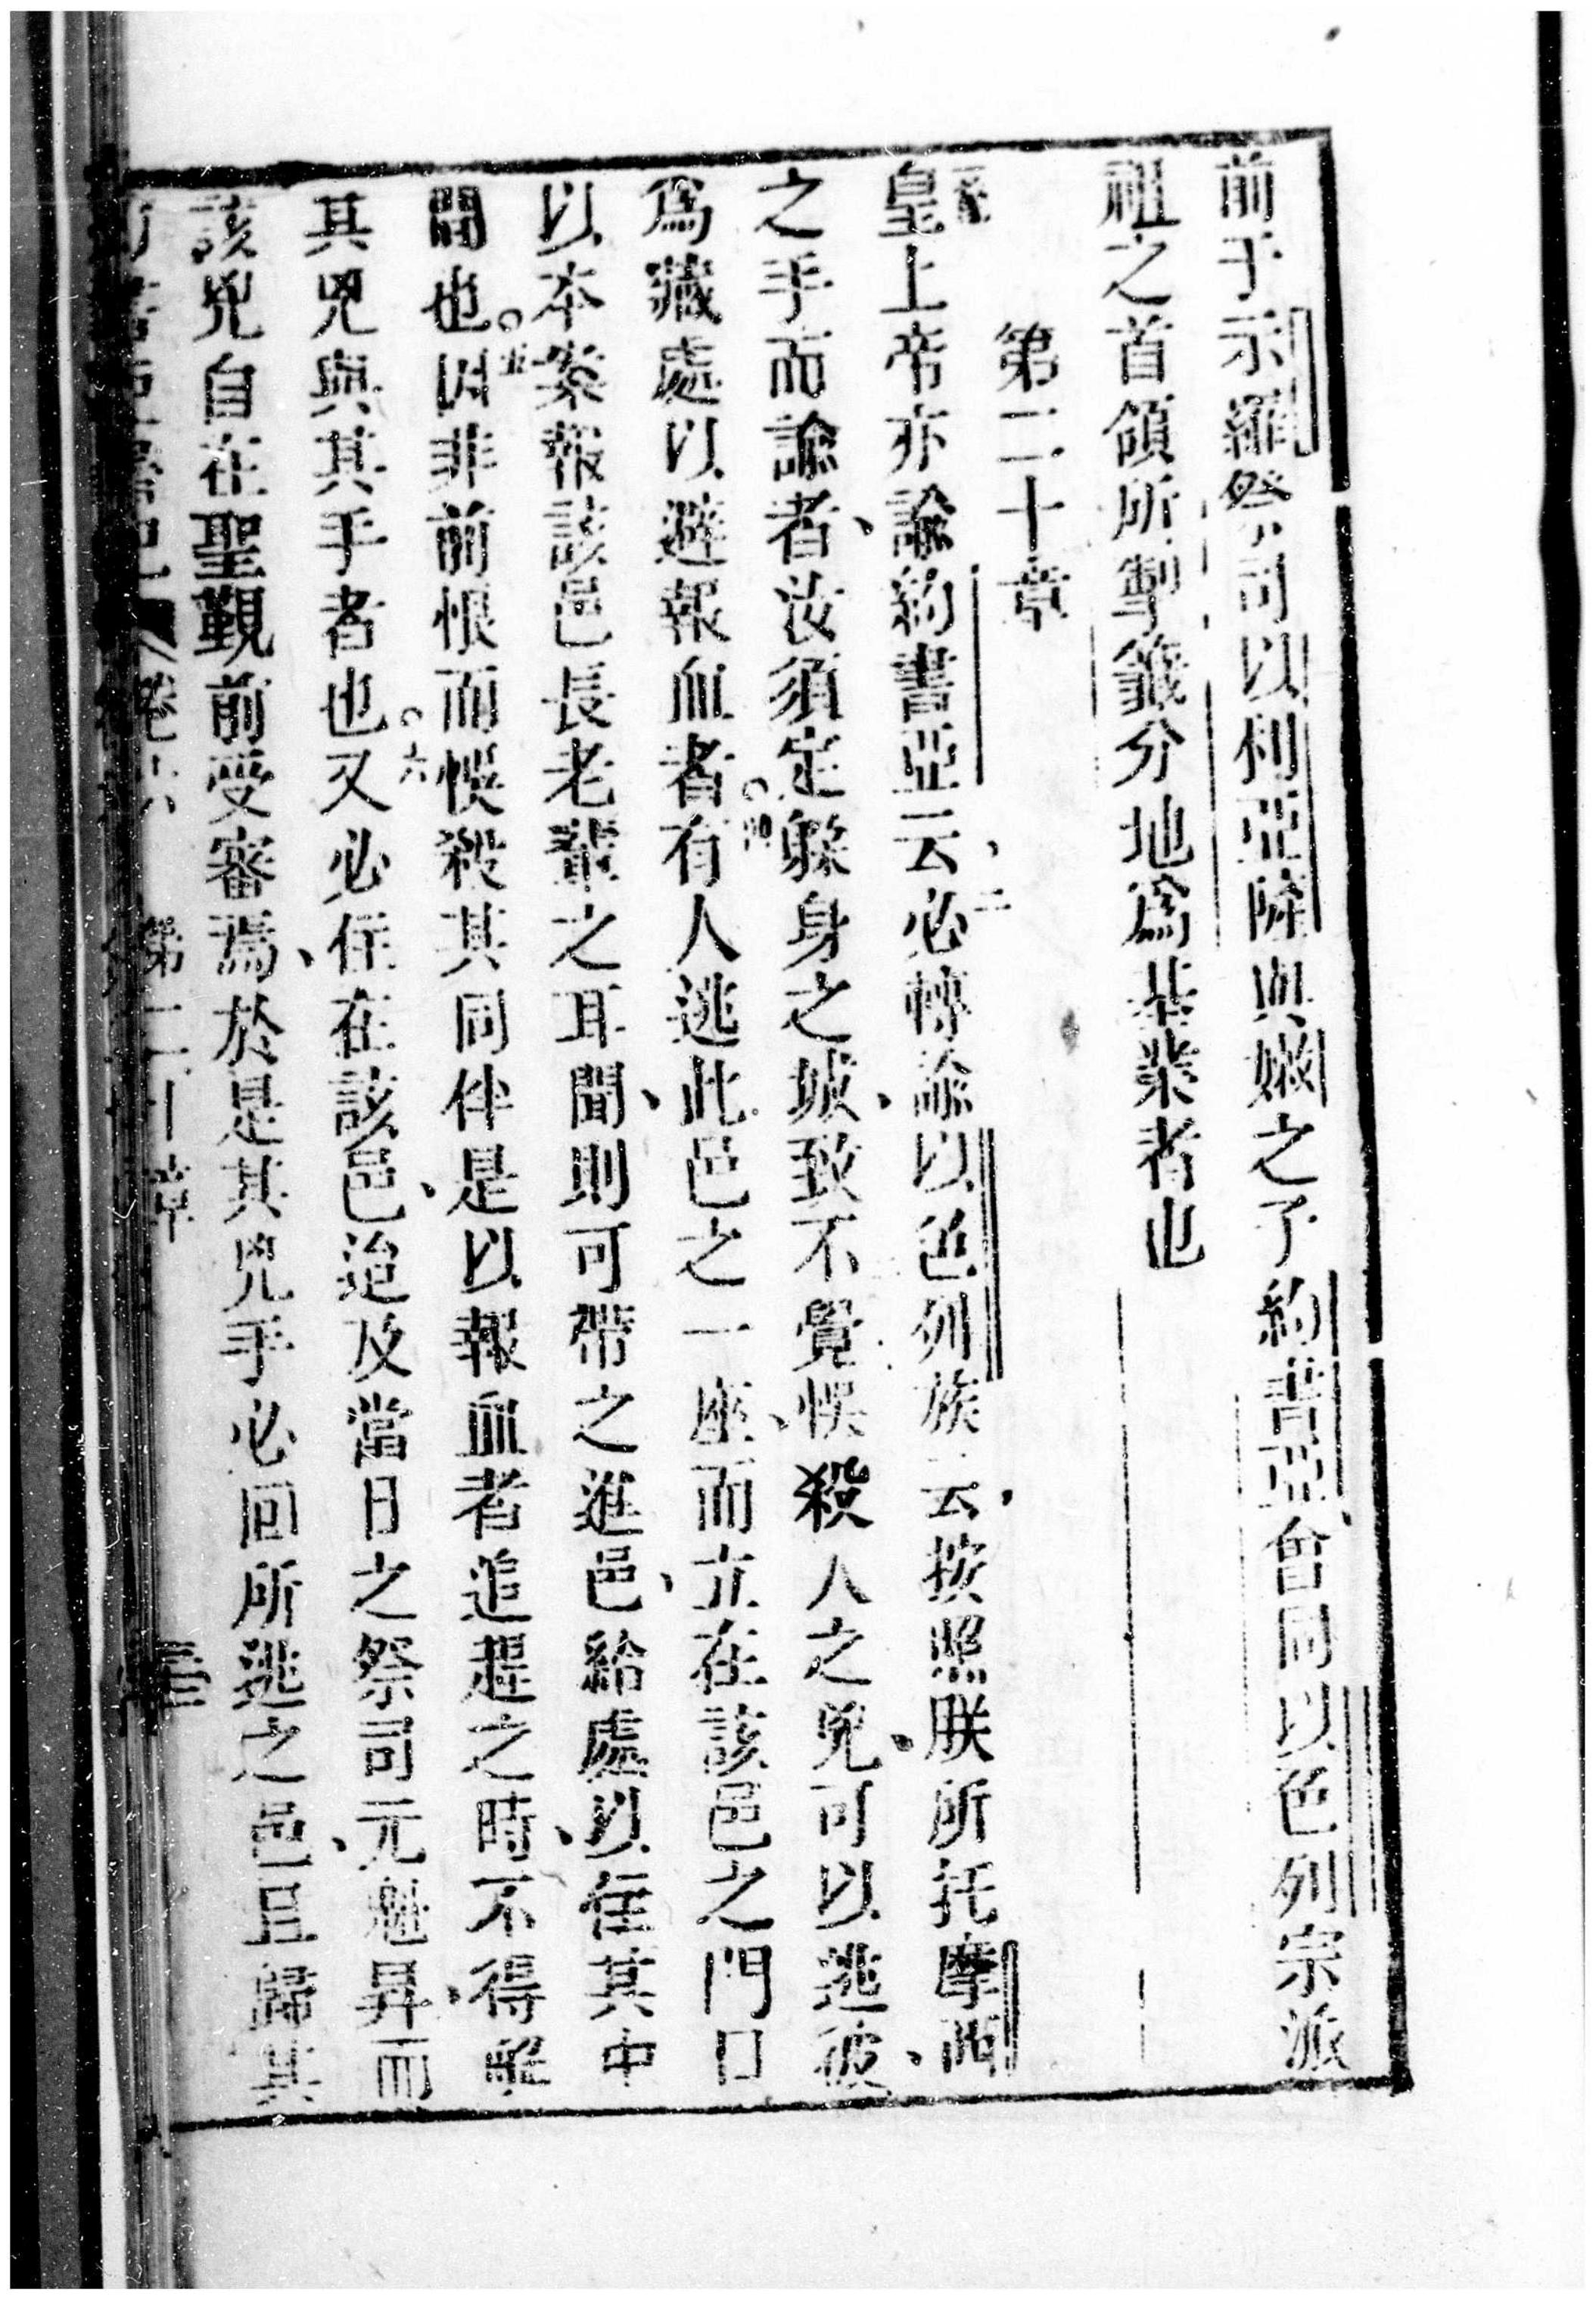 前于示羅祭司以利亞隆與嫩之子約書亞會同以色列宗派
祖之首領所掣籤分地爲基業者也
第二十章
皇上帝亦諭約書亞云、二必轉諭以色列族云、按照朕所托摩西、
之手而諭者、汝須定躲身之城、致不覺悞殺人之兇、可以逃彼
爲藏處以避報血者。四有人逃此邑之一座、而立在該邑之門口
以本案報該邑長老輩之耳聞、則可帶之進邑、給處以住其中
間也。五因非前恨而悞殺其同伴是以報血者追趕之時、不得解
其兇與其手者也。六又必住在該邑、迨及當日之祭司元魁昇、而
該兇自在聖覲前受審焉、於是其兇手必回所逃之邑且歸其
第二十章